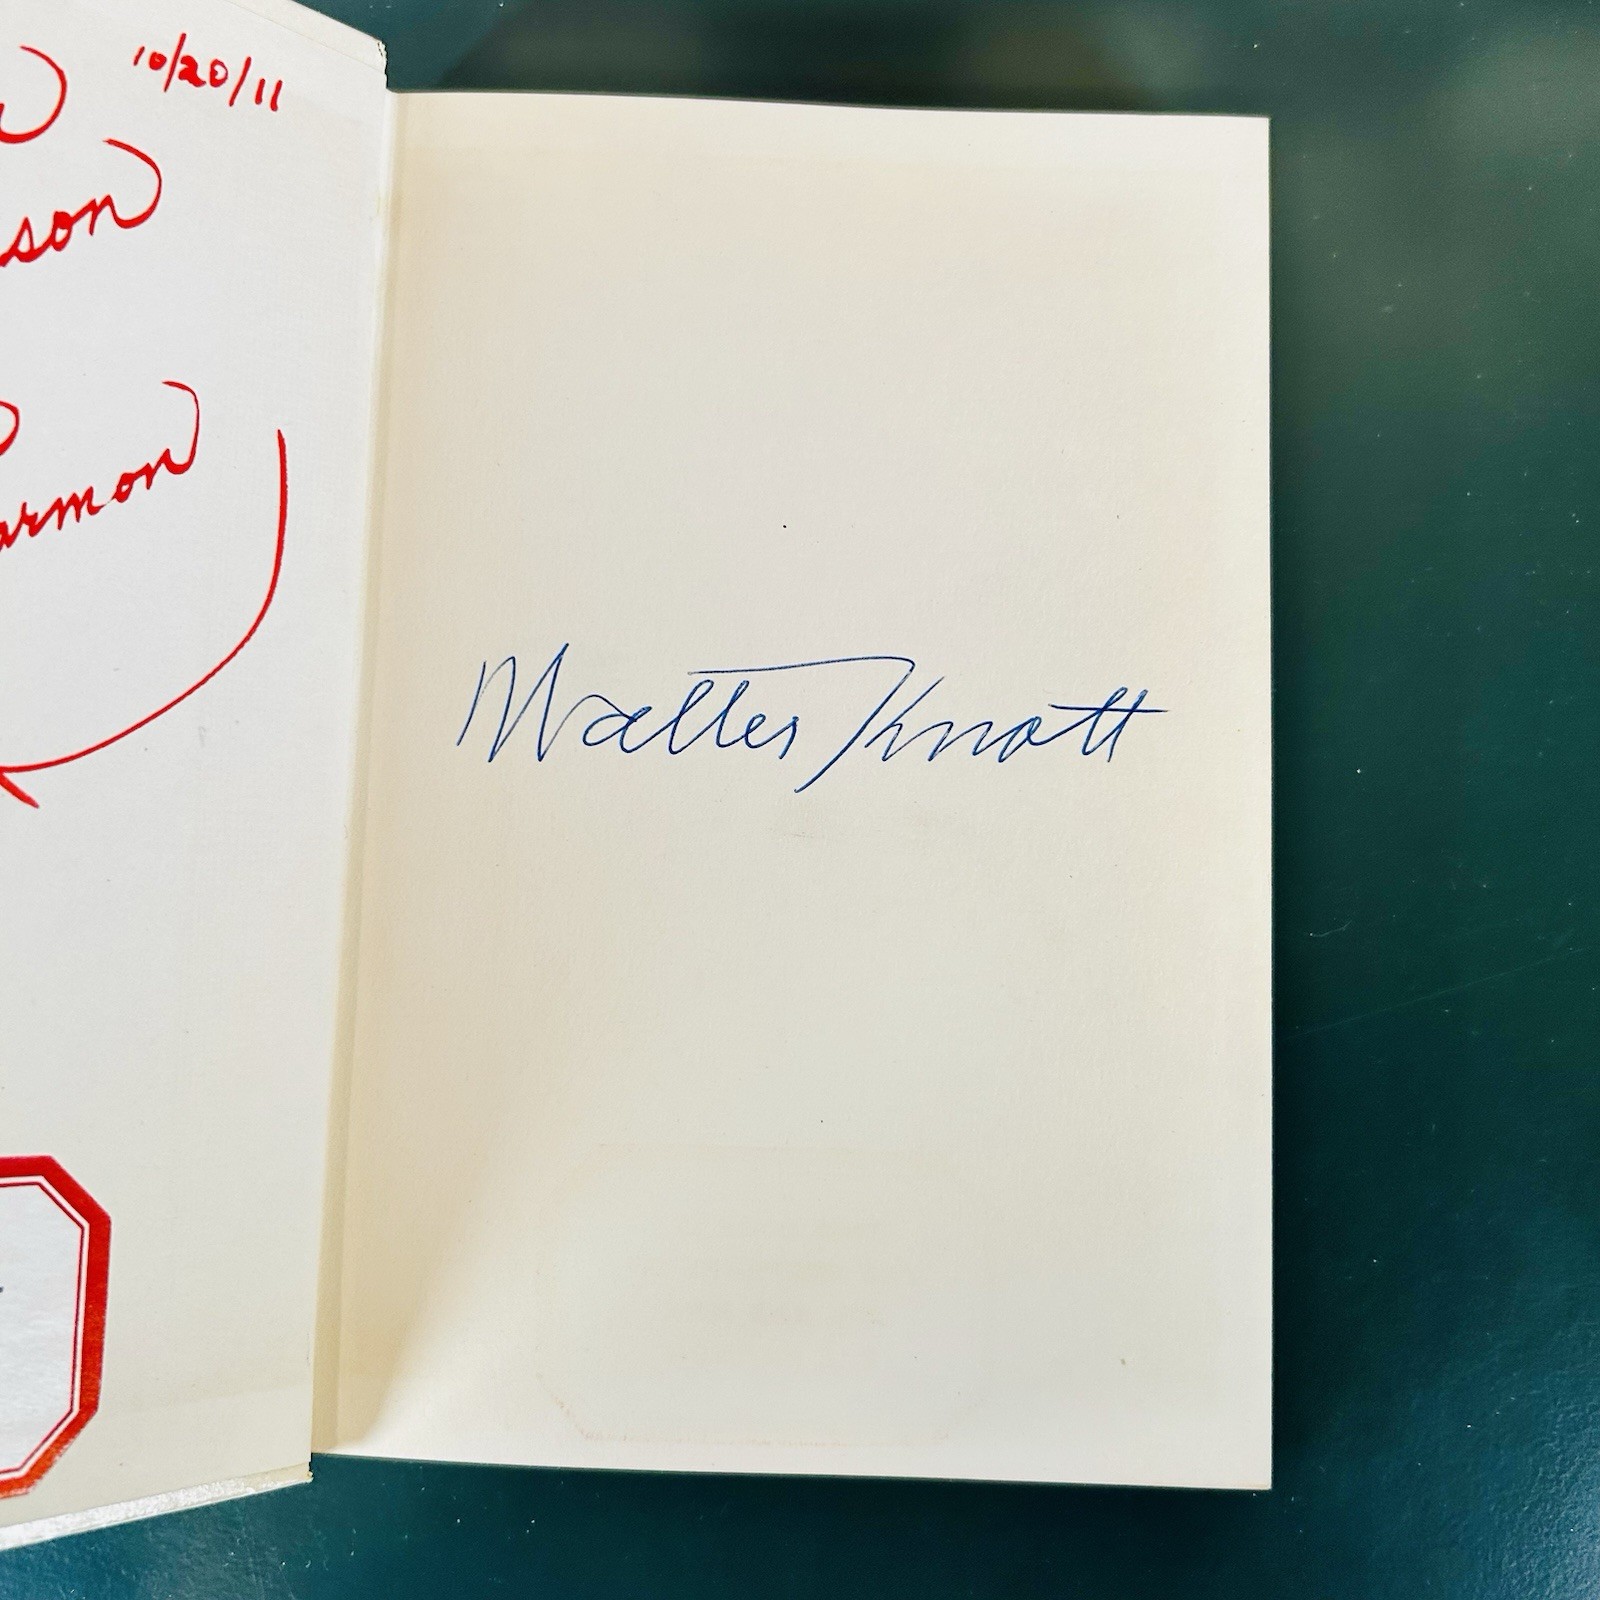 10/20/11
son
armon
Walter Knott